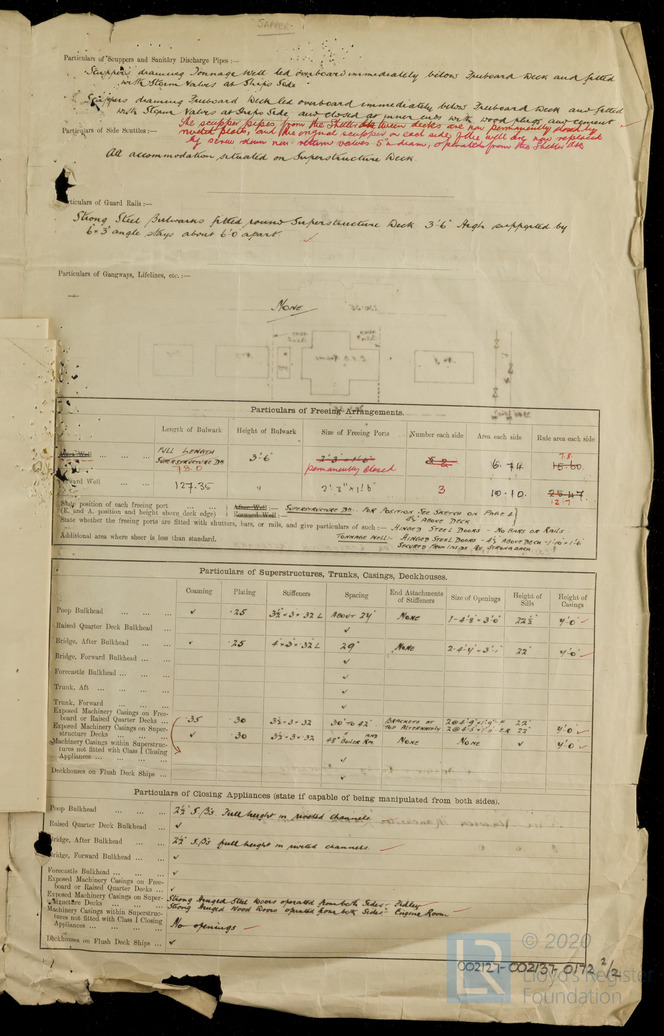 SAPPER.
Particulars of Scuppers and Sanitary Discharge Pipes :—
Scuppers draining Tonnage Well led overboard immediately below Freeboard Deck and fitted
with Storm Valves at Ships Side
Scuppers draining Freeboard Deck led overboard immediately below Freeboard Deck and fitted
with Storm Valve at Ships Side, and closed at inner ends with wood plugs and cement
The scupper pipes from the Shelter dk tween decks are now permanently closed by
Particulars of Side Scuttles :—
riveted plates, and the original scupper on each side of the well are now replaced
by screw down non-return valves 5" diam, operated from the Shelter dk
All accommodation situated on Superstructure Deck.
Particulars of Guard Rails :—
Strong Steel Bulwarks fitted round Superstructure Deck 3'-6" High supported by
6"×3" angle stays about 6'0" apart. ✓
Particulars of Gangways, Lifelines, etc. :—
NONE
Particulars of Freeing Arrangements.
Length of Bulwark Height of Bulwark Size of Freeing Ports Number each side Area each side Rule area each side
After Well FULL LENGTH SUPERSTRUCTURE DK 78.0 3'.6" permanently closed 6.74 7.8
Forward Well 127.35 " 2'.3"×1'.6" 3 10.10. 25.47 12.7
State position of each freeing port
(F. and A. position and height above deck edge) After Well :— SUPERSTRUCTURE DK. FOR POSITION SEE SKETCH ON PAGE 4
Forward Well :— 4½" ABOVE DECK
State whether the freeing ports are fitted with shutters, bars, or rails, and give particulars of such :— HINGED STEEL DOORS - NO BARS OR RAILS
Additional area where sheer is less than standard. TONNAGE WELL:- HINGED STEEL DOORS - 4½" ABOVE DECK - 1'.10"×1'.6"
SECURED FROM INSIDE BY STRONGBACK
Particulars of Superstructures, Trunks, Casings, Deckhouses.
Coaming Plating Stiffeners Spacing End Attachments of Stiffeners Size of Openings Height of Sills Height of Casings
Poop Bulkhead ✓ .25 3½×3×.32 L ABOUT 24" NONE 1-4'.8"×3'.0" 22½" 7'.0" ✓
Raised Quarter Deck Bulkhead ✓
Bridge, After Bulkhead ✓ .25 4"×3"×.32 L 29" NONE 2-4'.4"×3'.1" 22" 7'.0" ✓
Bridge, Forward Bulkhead ✓
Forecastle Bulkhead ✓
Trunk, Aft ✓
Trunk, Forward ✓
Exposed Machinery Casings on Freeboard or Raised Quarter Decks .35 .30 3½×3×.32 30" TO 42" BRACKETS AT TOP ALTERNATELY 22"
Exposed Machinery Casings on Superstructure Decks ✓ .30 3½×3×.32 48" BOILER RM NONE NONE ✓ 7'.0" ✓
Machinery Casings within Superstructures not fitted with Class I Closing Appliances ✓
Deckhouses on Flush Deck Ships ✓
Particulars of Closing Appliances (state if capable of being manipulated from both sides).
Poop Bulkhead 2½" S.B's Full height in riveted channels
Raised Quarter Deck Bulkhead ✓
Bridge, After Bulkhead 2½" S.B's full height in riveted channels ✓
Bridge, Forward Bulkhead ✓
Forecastle Bulkhead ✓
Exposed Machinery Casings on Freeboard or Raised Quarter Decks ✓
Exposed Machinery Casings on Superstructure Decks Strong Hinged Steel Doors operated from both Sides - Fidley
Strong Hinged Wood Doors operated from both Sides - Engine Room
Machinery Casings within Superstructures not fitted with Class I Closing Appliances No openings
Deckhouses on Flush Deck Ships ✓
© 2020
Lloyd's Register
Foundation
002127-002137-0172 2/2